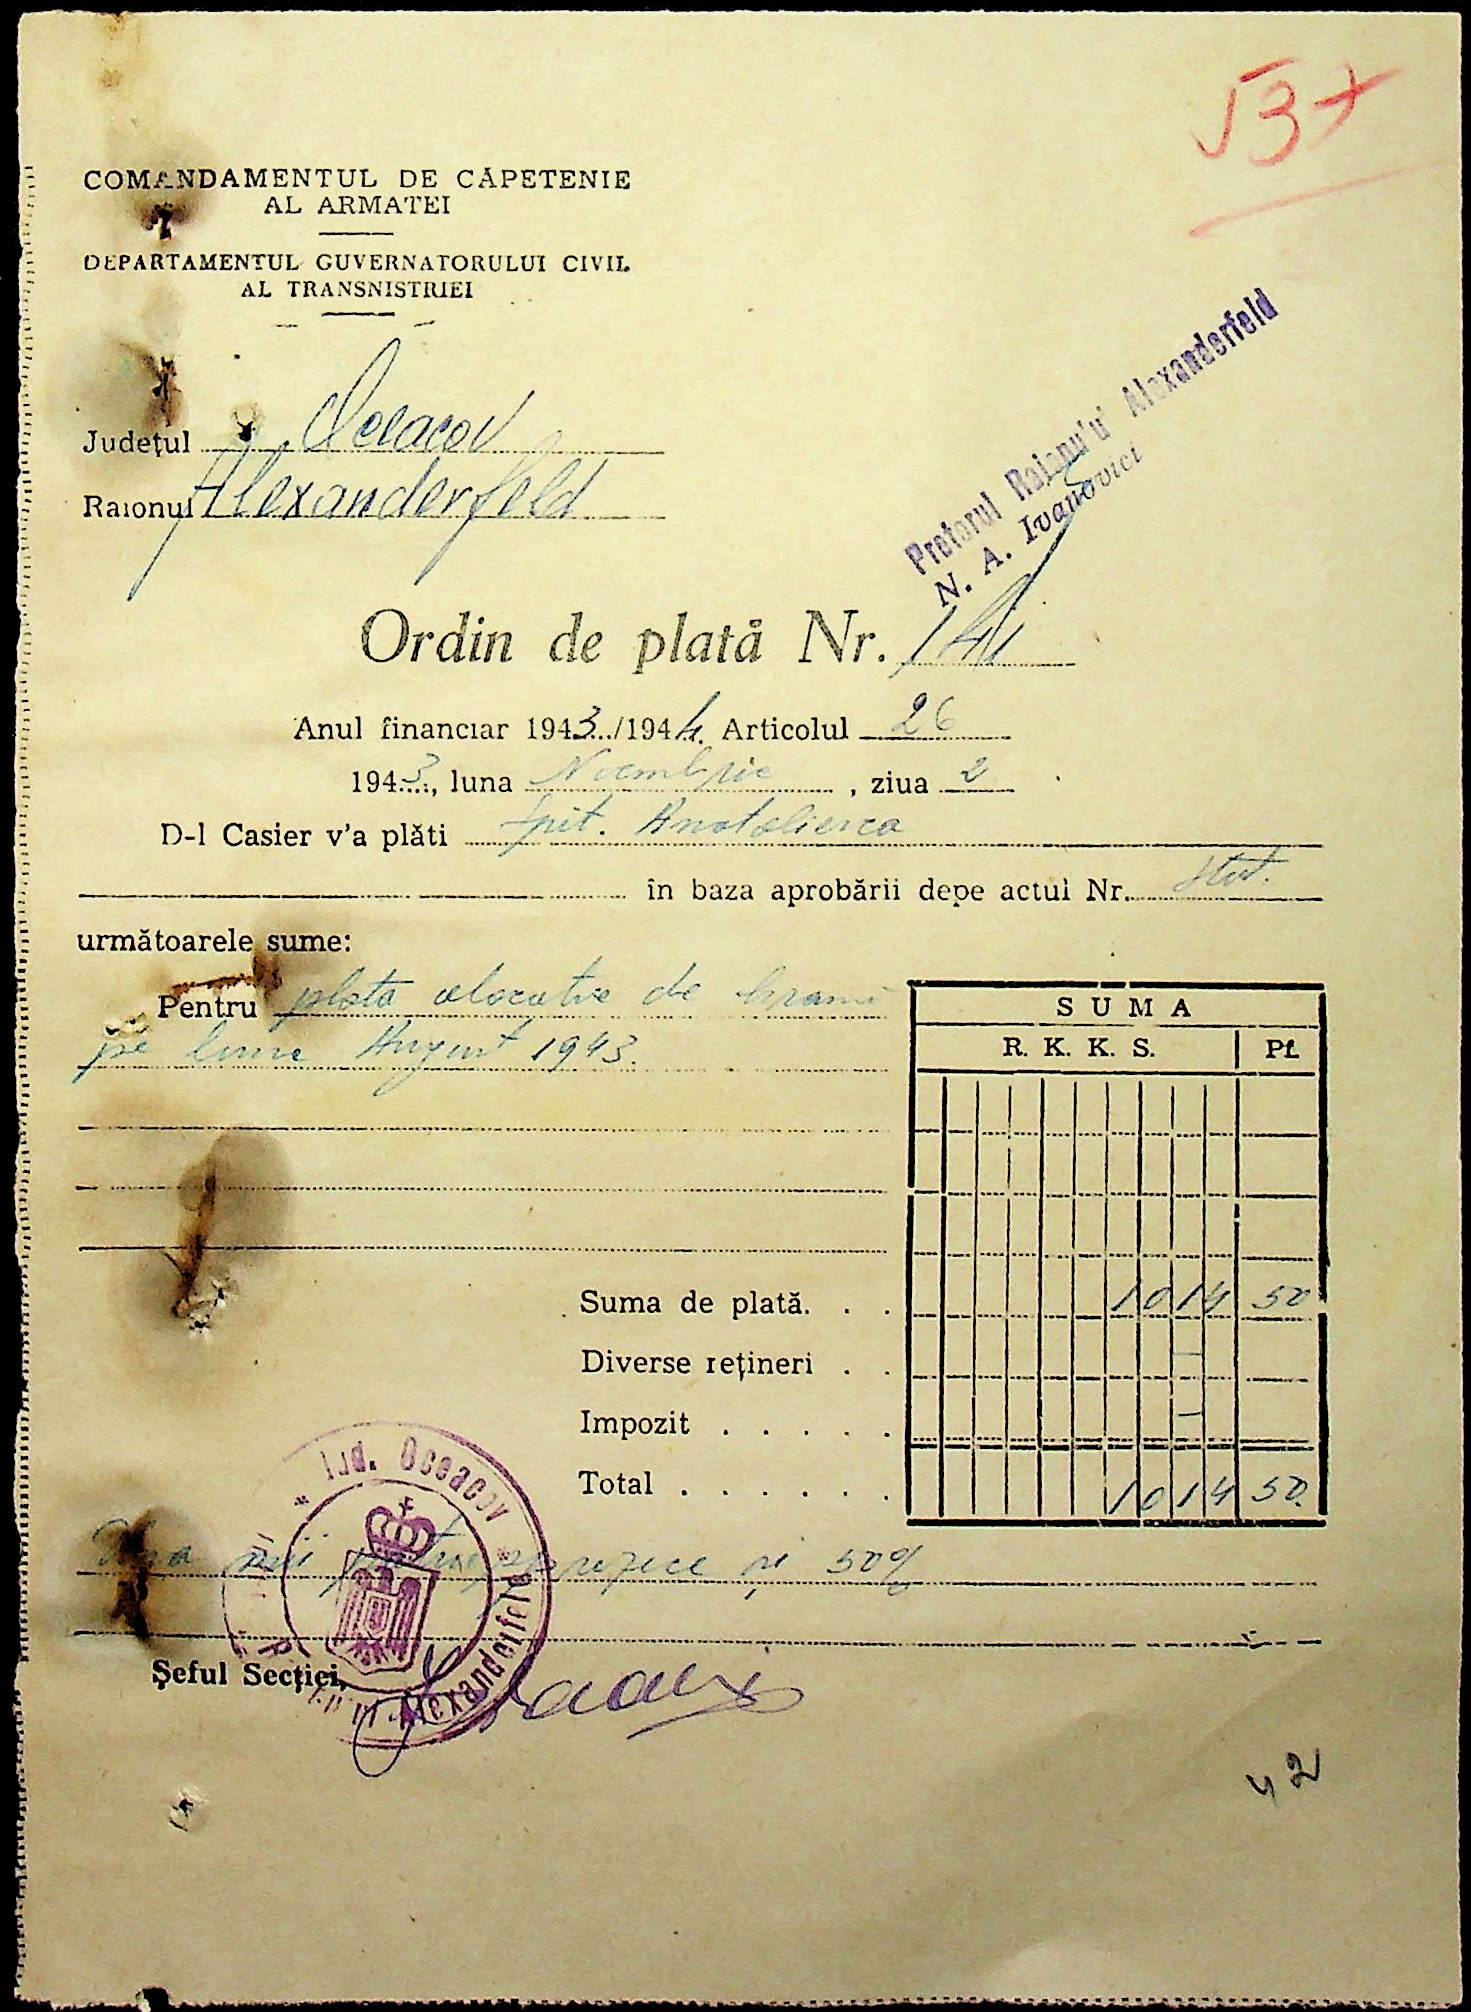 537
COMANDAMENTUL DE CĂPETENIE
AL ARMATEI
DEPARTAMENTUL GUVERNATORULUI CIVIL
AL TRANSNISTRIEI
Județul Oceacov
Raionul Alexanderfeld
Pretorul Raionului Alexanderfeld
N. A. Ivanovici
Ordin de plată Nr. 141
Anul financiar 1943/1944 Articolul 26
1943, luna Noembrie, ziua 2
D-l Casier v'a plăti Spit. Anatolievca
în baza aprobării depe actul Nr. Stat.
următoarele sume:
Pentru plata alocatie de hrană
pe luna August 1943.
SUMA
R. K. K. S. Pf.
Suma de plată. . . 1014 50
Diverse rețineri . . —
Impozit . . . . . —
Total . . . . . . 1014 50.
Una mii patrusprezece și 50%
Jud. Oceacov * Alexanderfeld
Șeful Secției,
42